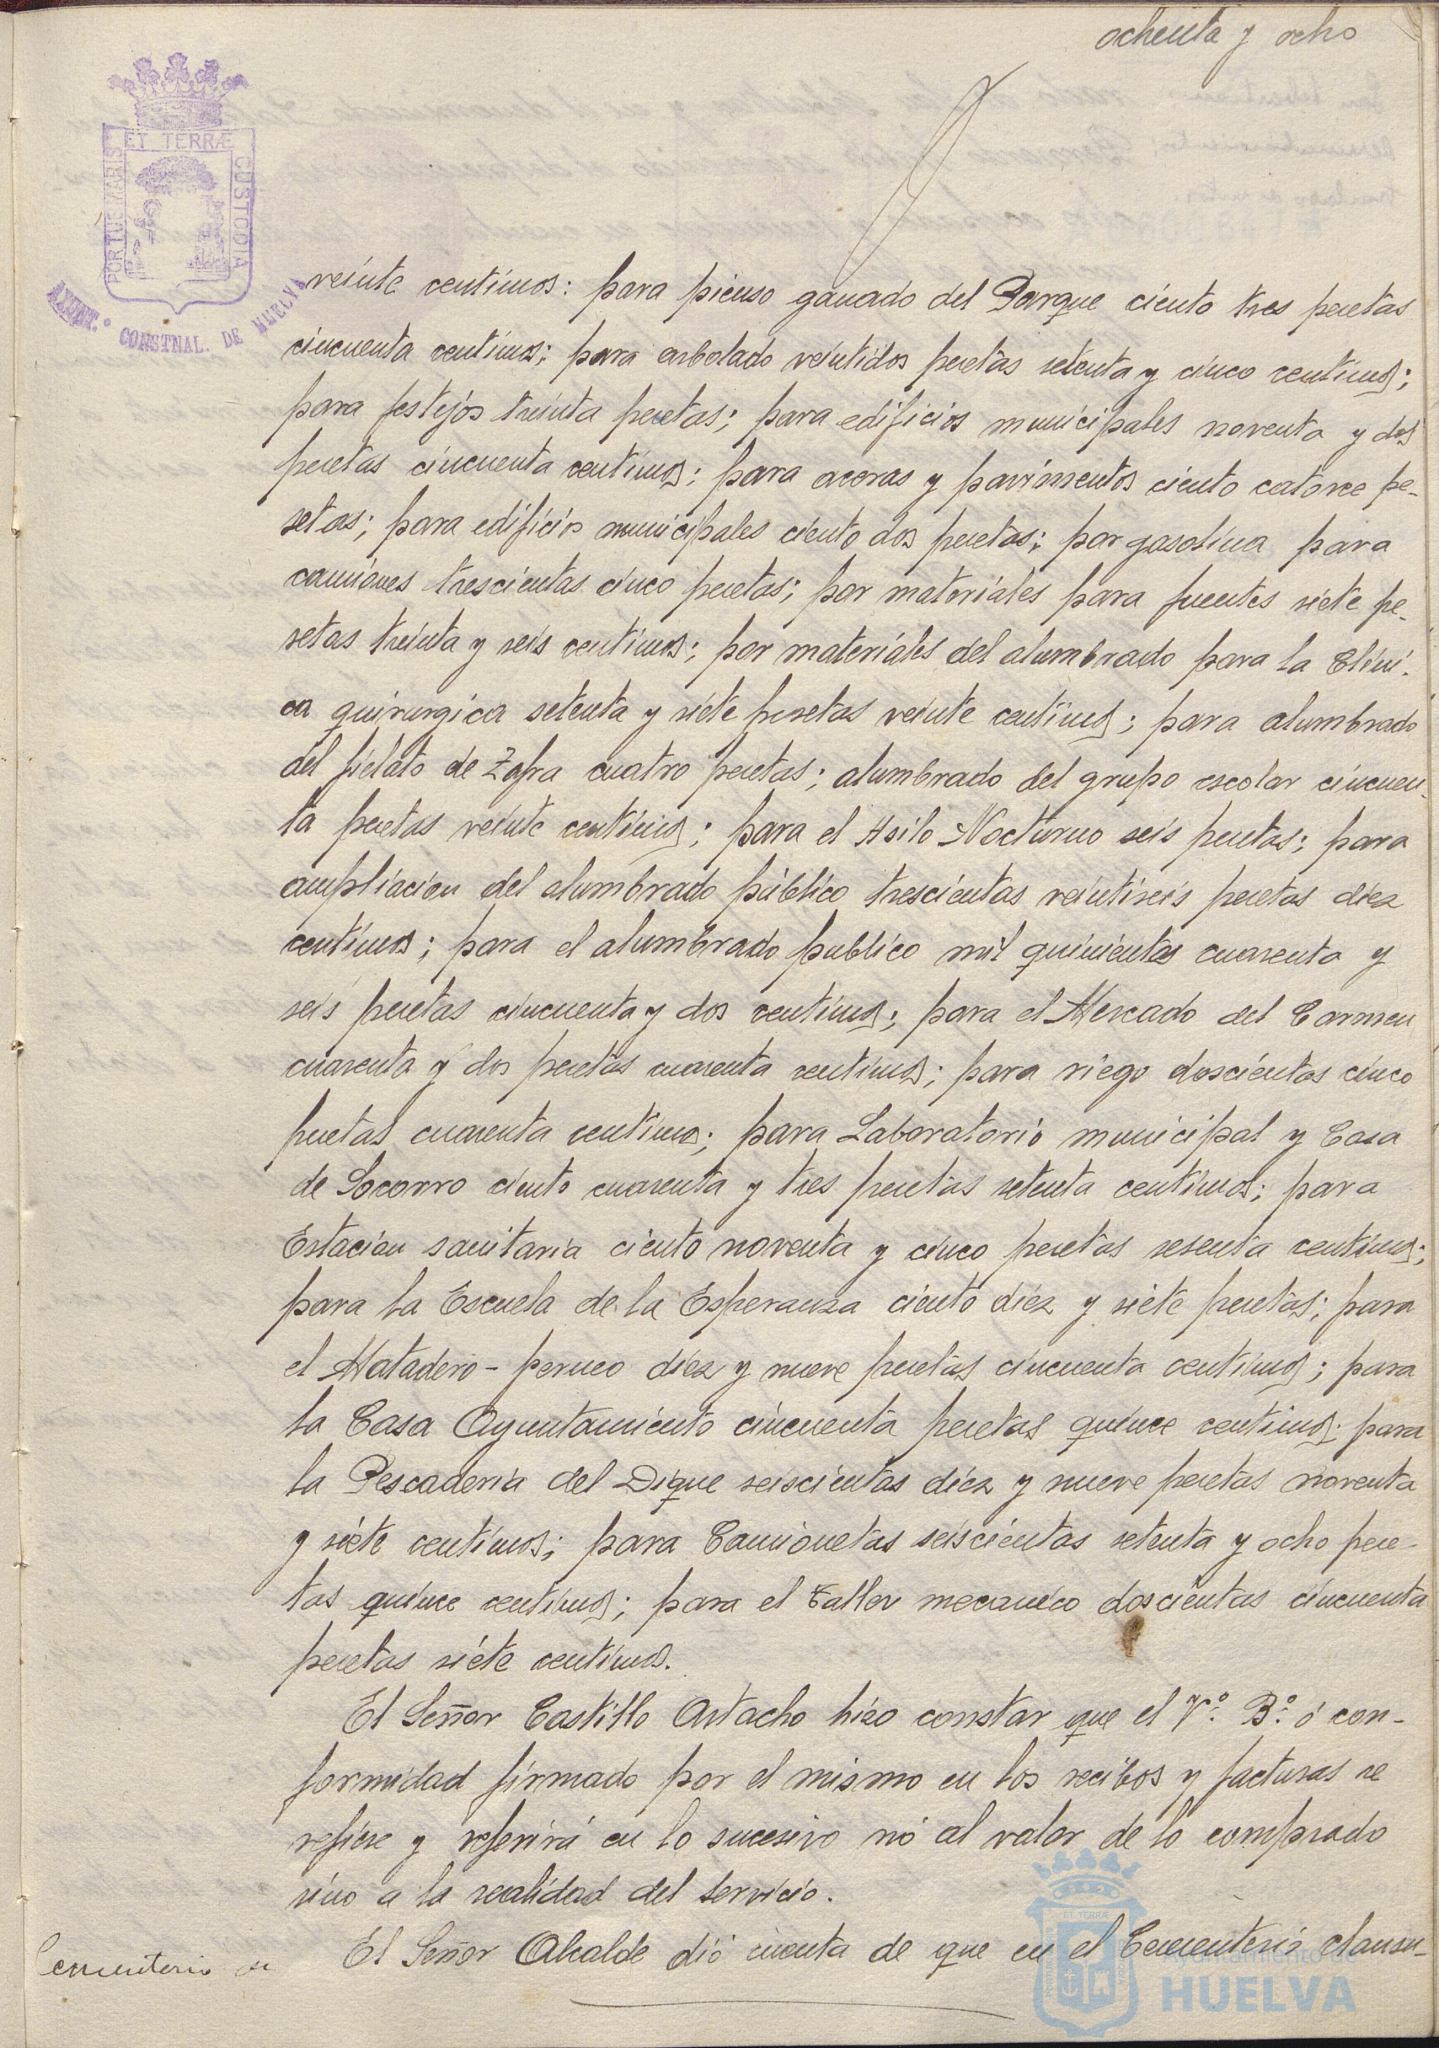 ochenta y ocho
ET TERRÆ
PORTUS MARIS
CUSTODIA
AYUNT. CONSTNAL. DE HUELVA
veinte centimos: para pienso ganado del Parque ciento tres pesetas
cincuenta centimos; para arbolado veintidos pesetas setenta y cinco centimos;
para festejos treinta pesetas; para edificios municipales noventa y dos
pesetas cincuenta centimos; para aceras y pavimentos ciento catorce pe-
setas; para edificios municipales ciento dos pesetas; por gasolina para
camiones trescientas cinco pesetas; por materiales para fuentes siete pe-
setas treinta y seis centimos; por materiales del alumbrado para la Clini-
ca quirurgica setenta y siete pesetas veinte centimos; para alumbrado
del fielato de Zafra cuatro pesetas; alumbrado del grupo escolar cincuen-
ta pesetas veinte centimos; para el Asilo Nocturno seis pesetas; para
ampliacion del alumbrado público trescientas veintiseis pesetas diez
centimos; para el alumbrado publico mil quinientas cuarenta y
seis pesetas cincuenta y dos centimos; para el Mercado del Carmen
cuarenta y dos pesetas cuarenta centimos; para riego doscientas cinco
pesetas cuarenta centimos; para Laboratorio municipal y Casa
de Socorro ciento cuarenta y tres pesetas setenta centimos; para
Estacion sanitaria ciento noventa y cinco pesetas sesenta centimos;
para la Escuela de la Esperanza ciento diez y siete pesetas; para
el Matadero-perneo diez y nueve pesetas cincuenta centimos; para
la Casa Ayuntamiento cincuenta pesetas quince centimos; para
la Pescaderia del Dique seiscientas diez y nueve pesetas noventa
y siete centimos; para Camionetas seiscientas setenta y ocho pese-
tas quince centimos; para el Taller mecanico doscientas cincuenta
pesetas siete centimos.
El Señor Castillo Astacho hizo constar que el Vº. Bº. ó con-
formidad firmado por el mismo en los recibos y facturas se
refiere y referirá en lo sucesivo nó al valor de lo comprado
sino a la realidad del servicio.
Cementerio en
El Señor Alcalde dió cuenta de que en el Cementerio clausu-
Ayuntamiento de
HUELVA